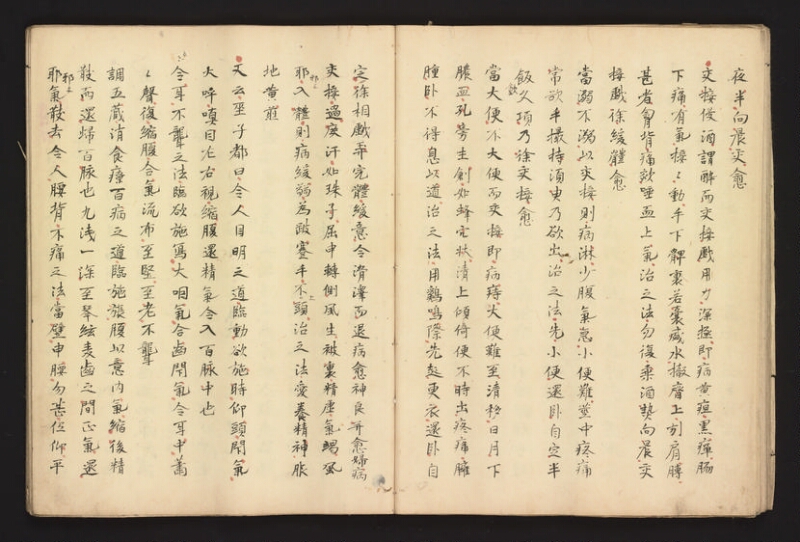 夜半向晨交愈
交接侵酒謂醉而交接戲用力深極即病黄疸黑瘅脇
下痛有氣接々動手下髀裏若囊盛水撤齊上引肩膊
甚者胷背痛欬唾血上氣治之法勿復乘酒勢向晨交
接戲徐緩體愈
當溺不溺以交接則病淋少腹氣急小便難莖中疼痛
常欲手撮持須臾乃欲出治之法先小便還卧自定半
飯久頃乃徐交接愈
當大便不大便而交接即病痔大便難至清移日月下
膿血孔旁生創如蜂窠狀清上傾倚便不時出疼痛臃
腫卧不得息以道治之法用鷄鳴際先起更衣還卧自
定徐相戲弄完體緩意令滑澤而還病愈神良并愈婦病
交接過度汗如珠子屈申轉側風生被裏精虛氣竭風
耶入體則病緩弱為跛蹇手不上頭治之法愛養精神服
地黄煎
又云巫子都曰令人目明之道臨動欲施時仰頭閇氣
大呼嗔目左右視縮腹還精氣令入百脉中也
令耳不聾之法臨欲施寫大咽氣合齒閇氣令耳中蕭
々聲復縮腹合氣流布至堅至老不聾
調五藏消食療百病之道臨施張腹以意内氣縮後精
散而還歸百脉也九淺一深至琴絃麦齒之間正氣還
耶氣散去令人腰背不痛之法當壁申腰勿甚低仰平